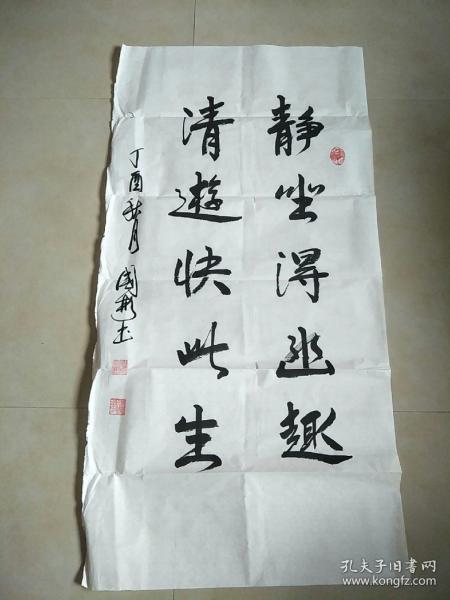 静坐得幽趣
清遊快此生
丁酉秋月 国彬书
孔夫子旧书网
www.kongfz.com